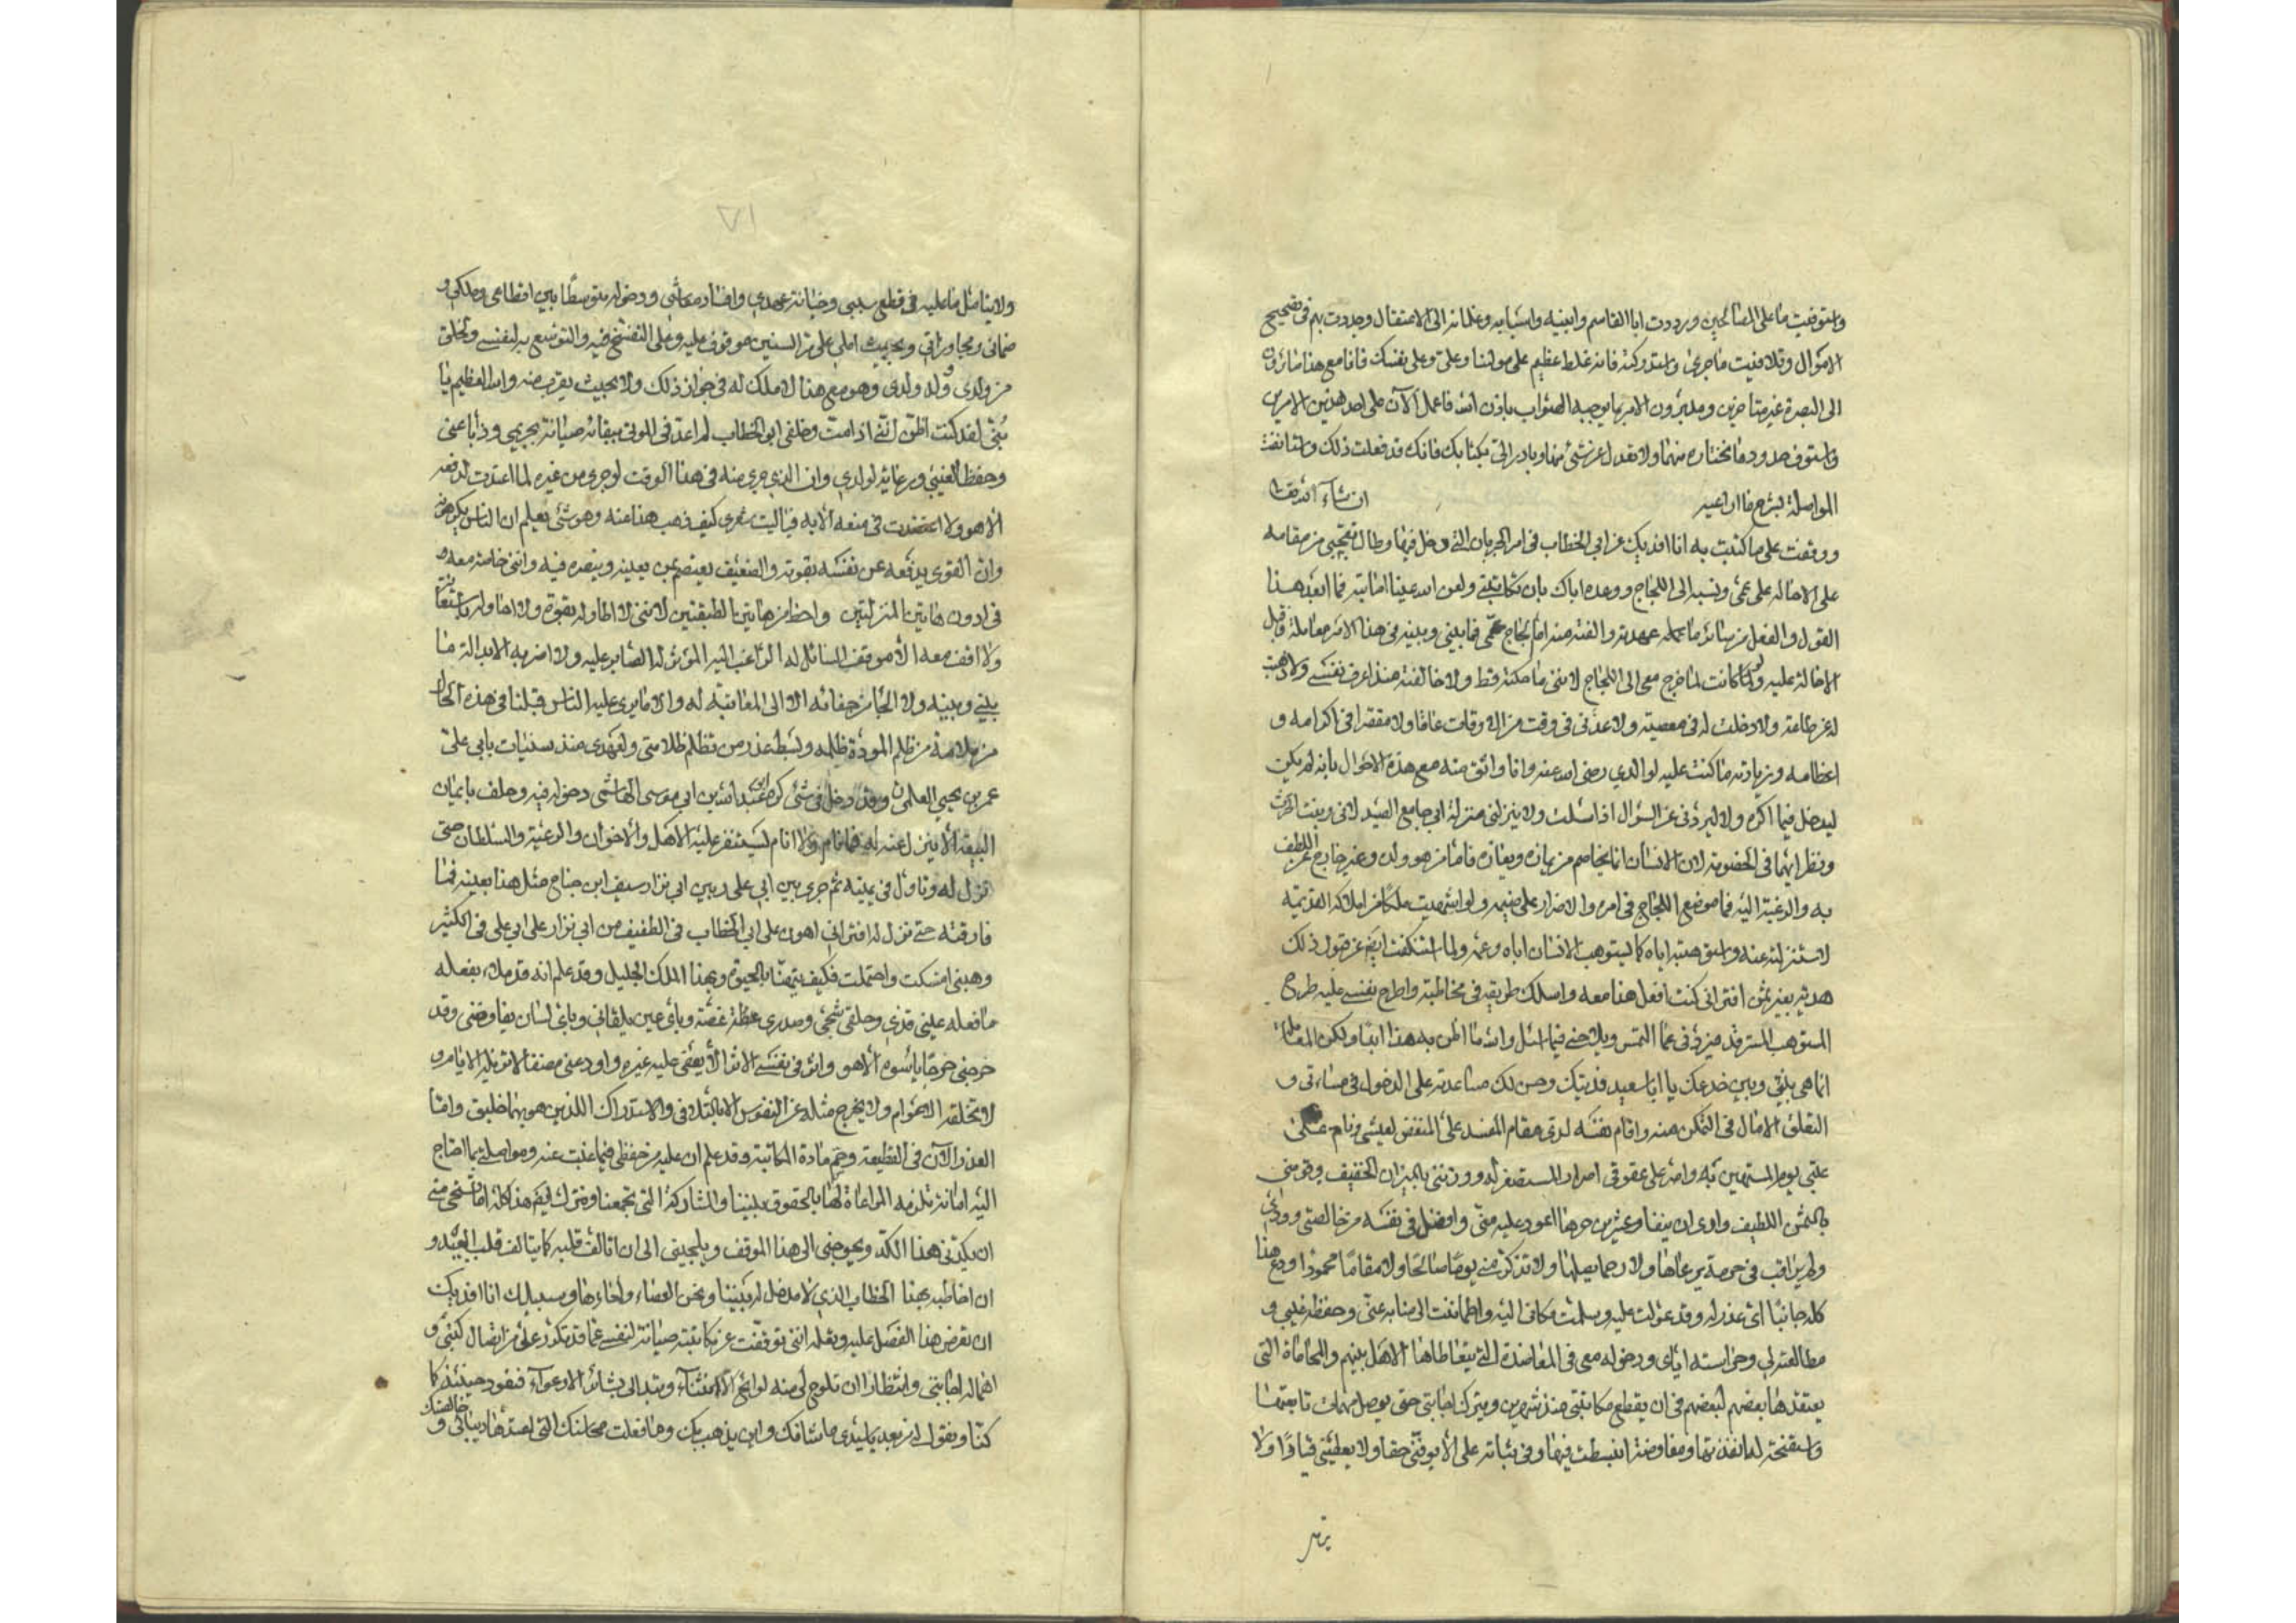 واستوفيت ما على الضالحين ورددت ابا القاسم وابنيه واسبابه وغلمانه الى الاعتقال وجددت بهم فى تصحيح
الاموال وتلافيت ما جرى واستدركته فانه غلط عظيم على مولانا وعلى وعلى نفسك فانا مع هذا سائرون
الى البصرة غير متاخرين ومدبرون الامر بما يوجبه الصواب باذن الله فاعمل الآن على احد هذين الامرين
واستوف حدود ما تختاره منهما ولا تعدل عن شئ منها وبادر الى بكتابك فانك قد فعلت ذلك واستانفت
المواصلة بشرح ما اراعيه ان شاء الله تعالى
ووقفت على ما كتبت به انا افديك عن ابي الخطاب فى امر الجربان التى دخل فيها وطال تعجبى من مقامه
على الاحالة على عمى ونسبه الى اللجاج ووعده اياك بان تكاتبنى ولعن الله عينا اصابته فما ابعد هذا
القول والفعل من سائر ما عمله عهدته والفته منه اما لجاج عمى فما بينى وبينه فى هذا الامر معاملة فاقبل
الاحالة عليه ولو كانت لما خرج معى الى اللجاج لاننى ما حكته قط ولا خالفته منذ اعرف نفسى ولا ذهبت
له عن طاعة ولا دخلت له فى معصية ولا عدنى فى وقت من الاوقات عاقا ولا مقصرا فى اكرامه و
اعظامه وزيادته ما كنت عليه لوالدي رضى الله عنه وانا واثق منه مع هذه الاحوال بانه لم يكن
ليدخل فيما اكره ولا ليردنى عن السؤال اذا سئلت ولا ينزلنى منزلة ابي جامع الصيد لانى وبنت الحرث
ونظرائهما فى الخصومة لان الانسان انما يخاصم من يمازه ويعازه فاما من هو ولده وغير خارج عن اللطف
به والرغبة اليه فما موضع اللجاج فى امره والاضرار على ضيمه ولو اشتهيت ملكا من املاكه القديمة
لاستنزلته عنه واستوهبته اياه كما يستوهب الانسان اباه وعمه ولما استنكفت ايضا عن قبول ذلك
هدية بغير ثمن افترانى كنت افعل هذا معه واسلك طريقه فى مخاطبته واطرح نفسى عليه طرح
المستوهب المسترفد فيردنى عما التمس ويلاحنى فيما اسئل والله ما اظن به هذا ابدا ولكن المعاملة
انما هى بينى وبين خدعك يا ابا سعيد فديتك وحسن لك مساعدته على الدخول فى مساءتى و
التعلق الامال فى التمكن منه واقام نفسه لدى مقام المفسد على المنغص لعيشى ونام عن
عتبى يوم المستهين به واصر على عقوقى اصرار المستصغر له ووزننى بالميزان الخفيف وقومنى
بالثمن اللطيف وارى ان نيفا وعشرين جربا اعود عليه منى وافضل فى نفسه من خالصتى وودى
ولم يراقب فى حرمة يرعاها ولا رحما يصلها ولا تذكر منى يوما صالحا ولا مقاما محمودا ودع هذا
كله جانبا اى عذر له وقد عولت عليه وسلمت مكانى اليه واطماننت الى منابه عنى وحفظه غيبى و
مطالعته لى وحراسته اياى ودخوله معى فى المعاضدة التى يتعاطاها الاهل بينهم والمحاماة التى
يعتقدها بعضهم لبعضهم فى ان يقطع مكاتبتى منذ شهرين ويترك اجابتى حتى يوصل مهمات تابعتها
واستفتحته لما انفذ بها ومفاوضة انبسطت فيها وفى ثباته على الا يوفينى حقا ولا يعطينى قيادا ولا
يتامل
١٧
ولا يتامل ما عليه فى قطع سببى وخيانة عهدي وافساد معاشى ودخوله متوسطا بين اقطاعى وملكى و
ضمانى ومجاوراتى وبحيث املى على مر السنين موقوف عليه وعلى التفسح فيه والتوسع به لنفسى ولمخلقى
من ولدى وولد ولدى وهو مع هذا لا ملك له فى جواز ذلك ولا بحيث يقرب منه والله العظيم يا
بنى لقد كنت اظن اننى اذا مت وخلفنى ابو الخطاب لم اعد فى الموتى ببقائه صيانة بحريمى وذابا عنى
وحفظا لغيبى ورعاية لولدي وان الذى جرى منه فى هذا الوقت لو جرى من غيره لما اعتدت لدفعه
الا هو ولا اعتضدت فى منعه الا به فياليت شعرى كيف ذهب هذا عنه وهو شئ يعلم ان الناس يكرهونه
وان القوى يدفعه عن نفسه بقوته والضعيف يعتصم بمن يعينه وينصره فيه واننى خاصة معه
فى ادون هاتين المنزلتين واخفض هاتين الطبقتين لاننى لا اطاوله بقوة ولا احاوله باستعانة
ولا اقف معه الا موقف السائل له الراغب اليه المؤثر له الصابر عليه ولا اضربه الا بدالة ما
بينى وبينه ولا الجا من جفائه الا الى المعاتبة له والا ما يرى عليه الناس قبلنا فى هذه الحال
من ملامة من ظلم المودة ظلمه وبسط عذر من تظلم ظلامتى ولعهدى منذ سنيات بابى على
عمر بن يحيى العلوى وقد دخل فى شئ كره ابو عبد الله بن ابي موسى الهاشمى دخوله فيه وحلف بايمان
البيعة الا ينزل عنه له فما نام ولا انام ليستنفر عليه الاهل والاخوان والرعية والسلطان حتى
نزل له وتاول فى يمينه ثم جرى بين ابي على وبين ابي نزار سيف ابن جناح مثل هذا بعينه فما
فارقته حتى نزل له افترانى اهون على ابي الخطاب فى الطفيف من ابي نزار على ابي على فى الكثير
وهبنى امسكت واحتملت فكيف يتهنا بالحيوة وبهذا الملك الجليل وقد علم انه قد ملا بفعله
ما فعله عينى قذى وحلقى شجى وصدرى عظة غصة وباى عين يلقانى وباى لسان يفاوضنى وقد
جرحنى جرحا ياسوه الا هو واثر فى نفسى الاثر الا يعفى عليه غيره واودعنى مضضا لا تزيله الايام و
لا تخلقه الاعوام ولا يخرج مثله عن النفوس الا بالتلافى والاستدراك اللذين هو بهما خليق واما
العذر الآن فى القطيعة وحسم مادة المكاتبة وقد علم ان عليه من حفظى فيما غبت عنه ومواصلتى بما احتاج
اليه امانة تلزمه المراعاة لها بالحقوق بيننا والمشاركة التى تجمعنا ومترك ليقم هذا كله اما تستحى منى
ان يكدنى هذا الكد ويحوجنى الى هذا الموقف ويلجينى الى ان اتالف قلبه كما يتالف قلب العبد و
ان اخاطبه بهذا الخطاب الذي لا مدخل له بيننا ونحن العضاء واخاءها وسبيلك انا افديك
ان تعرض هذا الفصل عليه وتعلمه اننى توقفت عن مكاتبته صيانة لنفسى عما قد تكرر على من ايصال كتبى و
اهماله اجابتى وانتظارا ان تلوح لى منه لوائح الانثناء وتبدالى بشائر الارعواء فنعود حينئذ كما
كنا ونقول له من بعد يا سيدى ما شانك واين يذهب بك وما فعلت محاسنك التى لعتدها ديباتى و
خالصتك